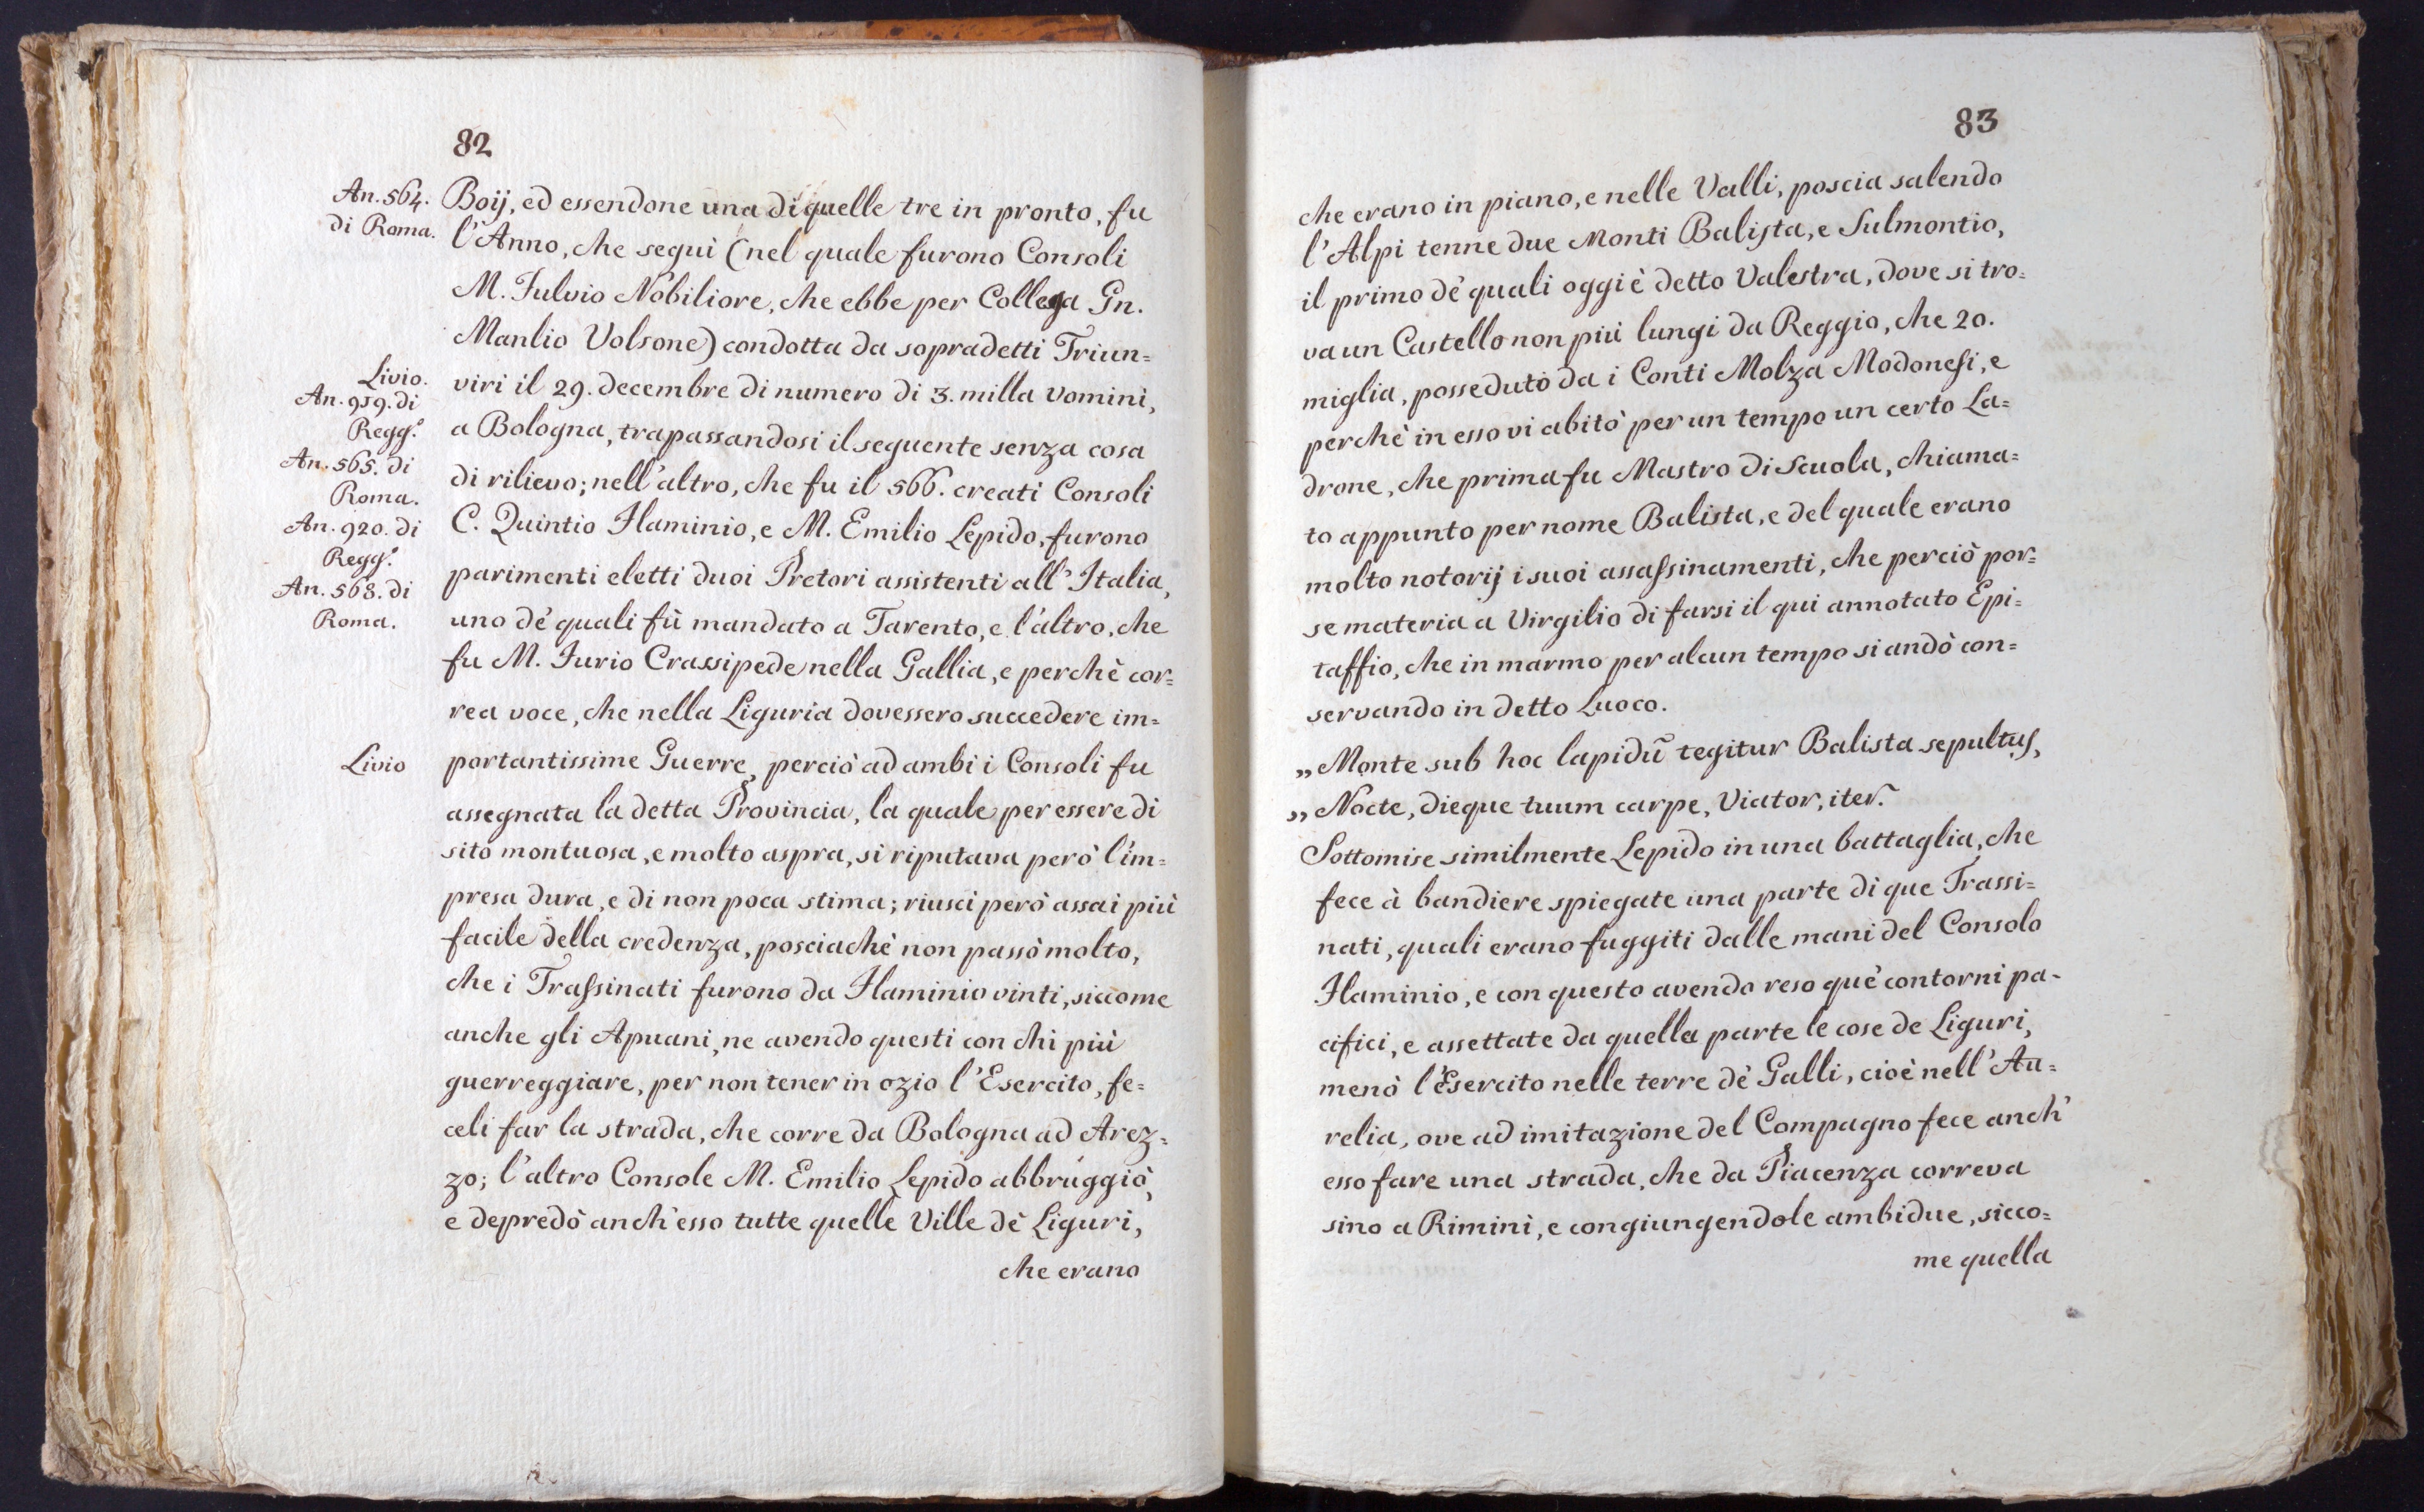 82
An. 564.
di Roma.
Boij, ed essendone una di quelle tre in pronto, fu
l'Anno, che seguì (nel quale furono Consoli
M. Fulvio Nobiliore, che ebbe per Collega Gn.
Manlio Volsone) condotta da sopradetti Triun=
Livio.
An. 959. di
Regg.º
An. 565. di
Roma.
An. 920. di
Regg.º
An. 568. di
Roma.
viri il 29. decembre di numero di 3. milla Vomini,
a Bologna, trapassandosi il seguente senza cosa
di rilievo; nell'altro, che fu il 566. creati Consoli
C. Quintio Flaminio, e M. Emilio Lepido, furono
parimenti eletti duoi Pretori assistenti all'Italia,
uno dè quali fù mandato a Tarento, e l'altro, che
fu M. Furio Crassipede nella Gallia, e perchè cor=
rea voce, che nella Liguria dovessero succedere im=
Livio
portantissime Guerre, perciò ad ambi i Consoli fu
assegnata la detta Provincia, la quale per essere di
sito montuosa, e molto aspra, si riputava però l'im=
presa dura, e di non poca stima; riuscì però assai più
facile della credenza, posciachè non passò molto,
che i Trassinati furono da Flaminio vinti, siccome
anche gli Apuani, ne avendo questi con chi più
guerreggiare, per non tener in ozio l'Esercito, fe=
celi far la strada, che corre da Bologna ad Arez=
zo; l'altro Console M. Emilio Lepido abbruggiò,
e depredò anch'esso tutte quelle Ville dè Liguri,
che erano
83
che erano in piano, e nelle Valli, poscia salendo
l'Alpi tenne due Monti Balista, e Sulmontio,
il primo dè quali oggi è detto Valestra, dove si tro=
va un Castello non più lungi da Reggio, che 20.
miglia, posseduto da i Conti Molza Modonesi, e
perchè in esso vi abitò per un tempo un certo La=
drone, che prima fu Mastro di Scuola, chiama=
to appunto per nome Balista, e del quale erano
molto notorij i suoi assassinamenti, che perciò por=
se materia a Virgilio di farsi il qui annotato Epi=
taffio, che in marmo per alcun tempo si andò con=
servando in detto Luoco.
„ Monte sub hoc lapidũ tegitur Balista sepultus,
„ Nocte, dieque tuum carpe, Viator, iter.
Sottomise similmente Lepido in una battaglia, che
fece à bandiere spiegate una parte di que Trassi=
nati, quali erano fuggiti dalle mani del Consolo
Flaminio, e con questo avendo reso què contorni pa-
cifici, e assettate da quella parte le cose de Liguri,
menò l'Esercito nelle terre dè Galli, cioè nell'Au=
relia, ove ad imitazione del Compagno fece anch'
esso fare una strada, che da Piacenza correva
sino a Rimini, e congiungendole ambidue, sicco=
me quella